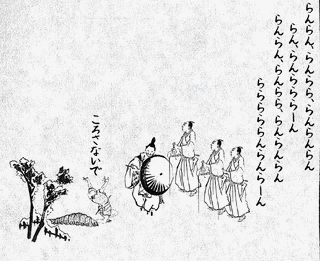 らんらん、らんらら、らんらんらん
らん、らんらららーん
らんらん、らんらら、らんらんらん
ららら、ららんらんらーん
ころさないで